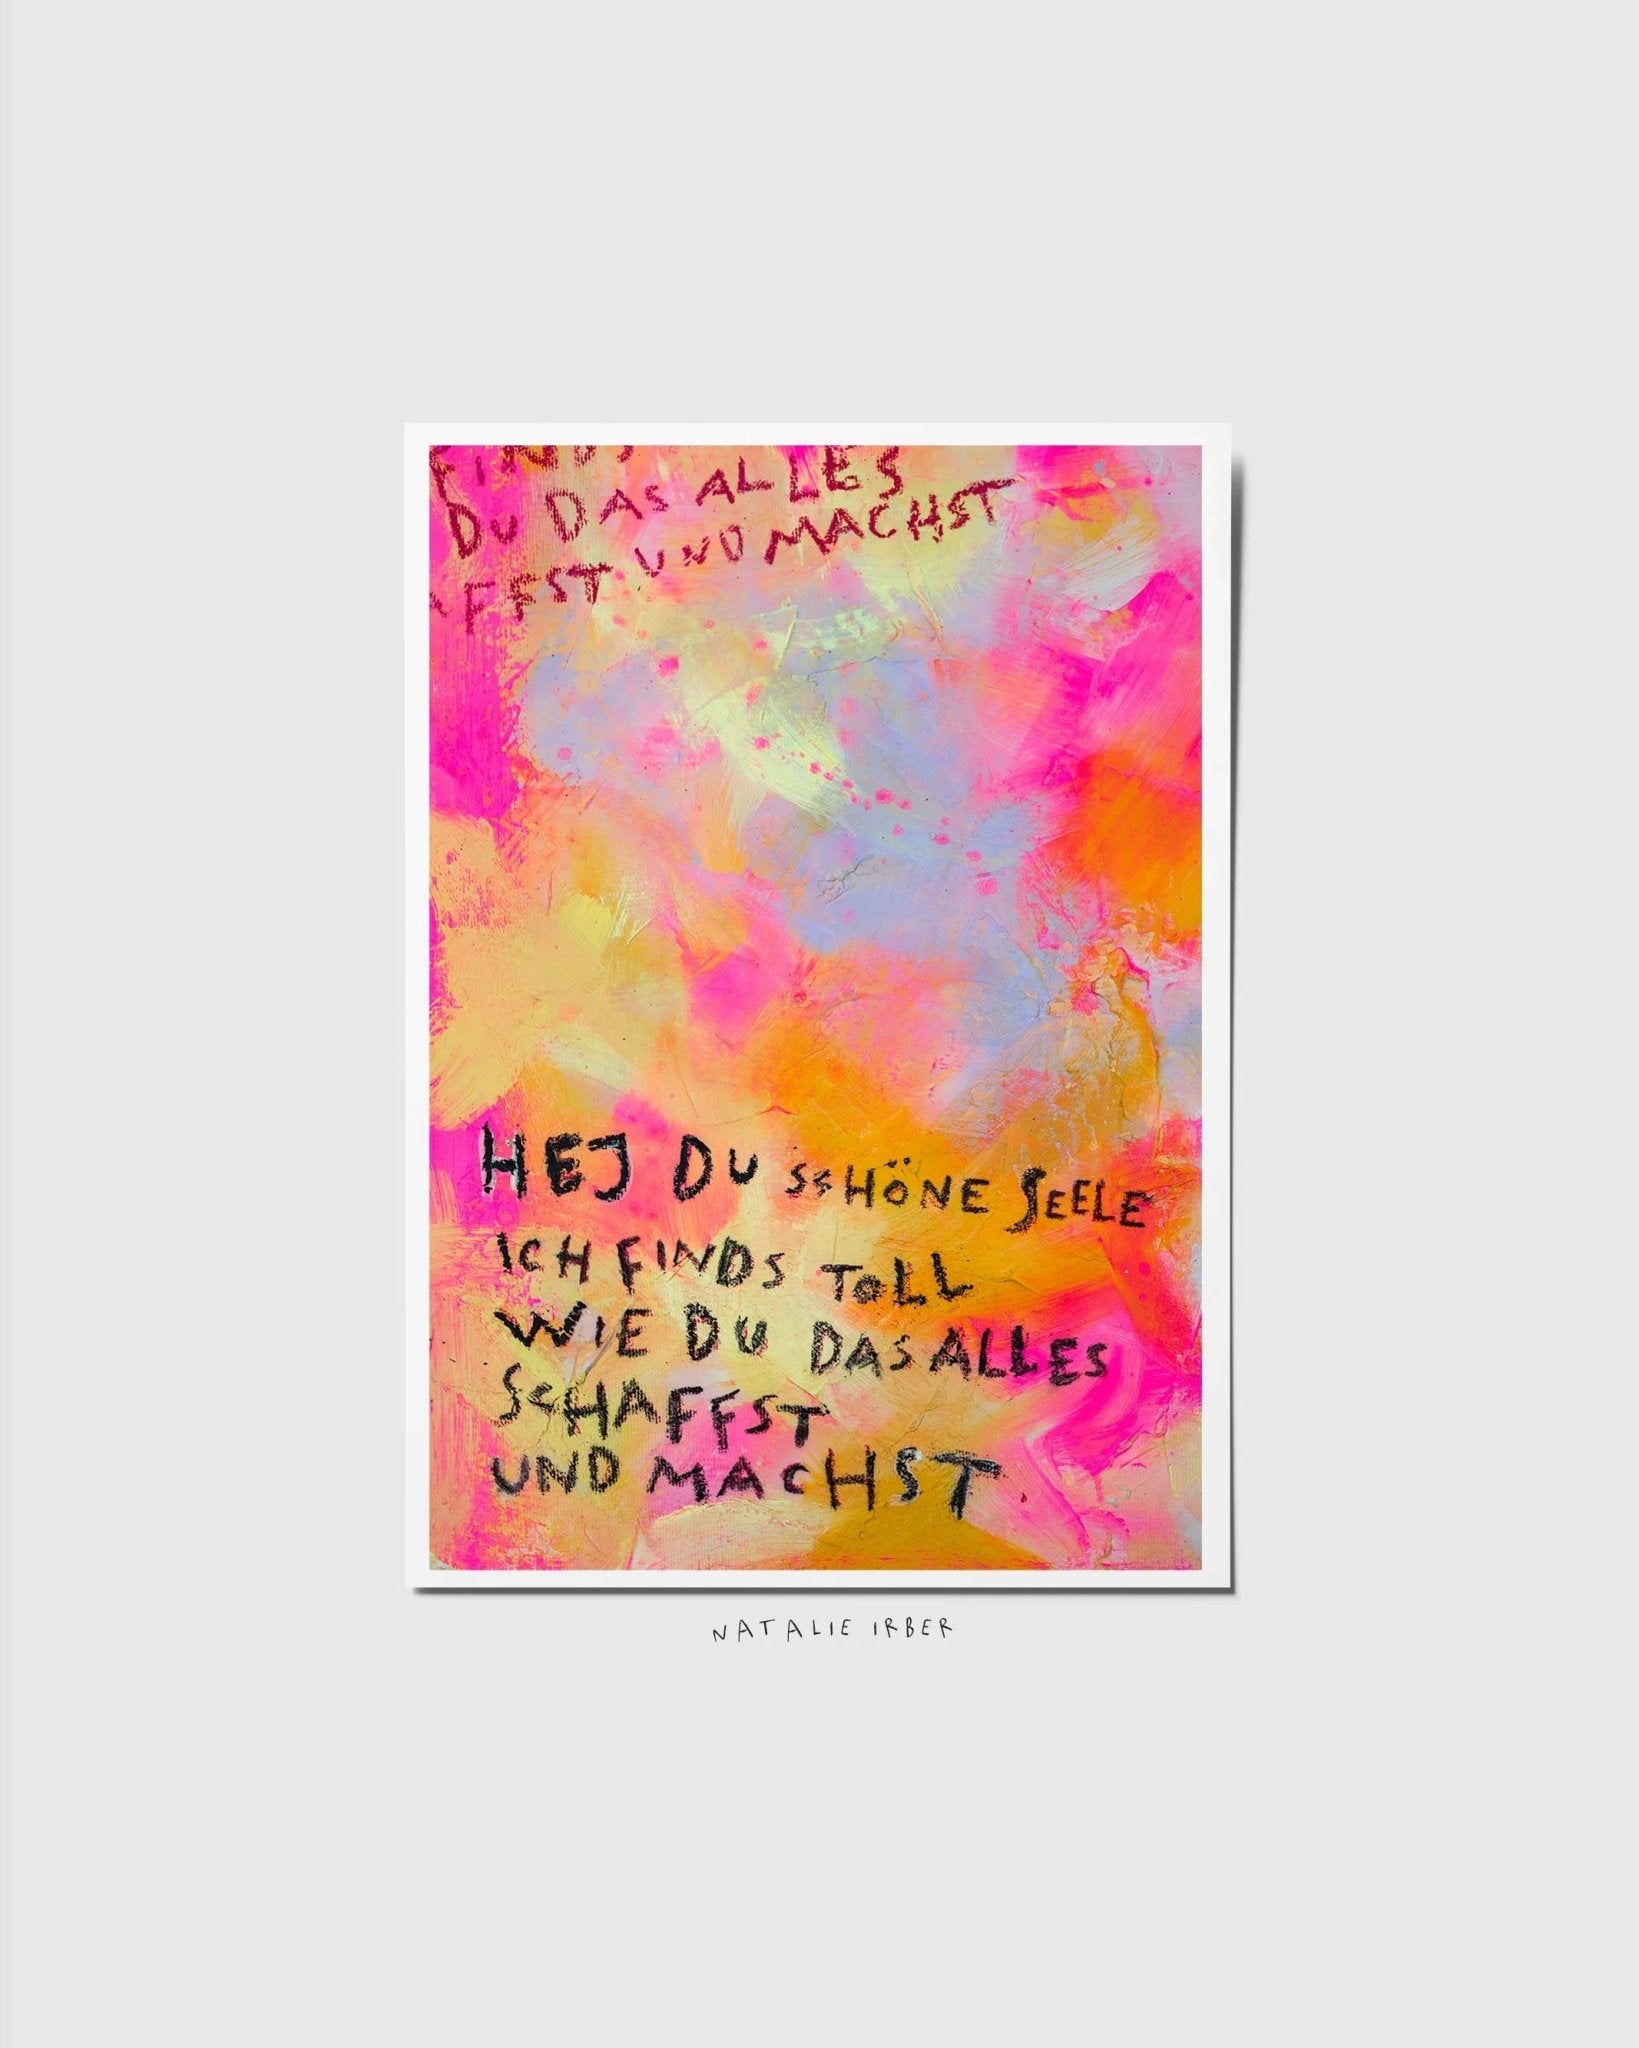 FINDS
DU DAS ALLES
AFFST UND MACHST
HEJ DU SCHÖNE SEELE
ICH FINDS TOLL
WIE DU DAS ALLES
SCHAFFST
UND MACHST
NATALIE IRBER